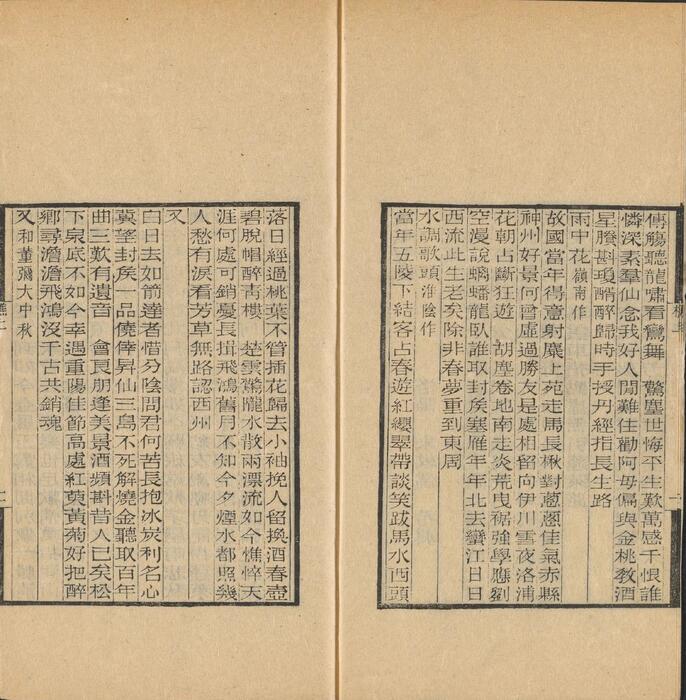 傳觴聽龍嘯看鸞舞　驚塵世悔平生歎萬感千恨誰
憐深素羣仙念我好人閒難住勸阿母偏與金桃教酒
星賸斟瓊醑醉歸時手授丹經指長生路
雨中花 嶺南作
故國當年得意射麋上苑走馬長楸對蔥蔥佳氣赤縣
神州好景何曾虛過勝友是處相留向伊川雪夜洛浦
花朝占斷狂遊　胡塵卷地南走炎荒曳裾強學應劉
空漫說螭蟠龍臥誰取封矦塞雁年年北去蠻江日日
西流此生老矣除非春夢重到東周
水調歌頭 淮陰作
當年五陵下結客占春遊紅纓翠帶談笑跋馬水西頭
落日經過桃葉不管插花歸去小袖挽人留換酒春壺
碧脫帽醉青樓　楚雲驚隴水散兩漂流如今憔悴天
涯何處可銷憂長揖飛鴻舊月不知今夕煙水都照幾
人愁有淚看芳草無路認西州
又
白日去如箭達者惜分陰問君何苦長抱冰炭利名心
冀望封矦一品僥倖昇仙三島不死解燒金聽取百年
曲三歎有遺音　會良朋逢美景酒頻斟昔人已矣松
下泉底不如今幸遇重陽佳節高處紅萸黃菊好把醉
鄉尋澹澹飛鴻沒千古共銷魂
又 和董彌大中秋